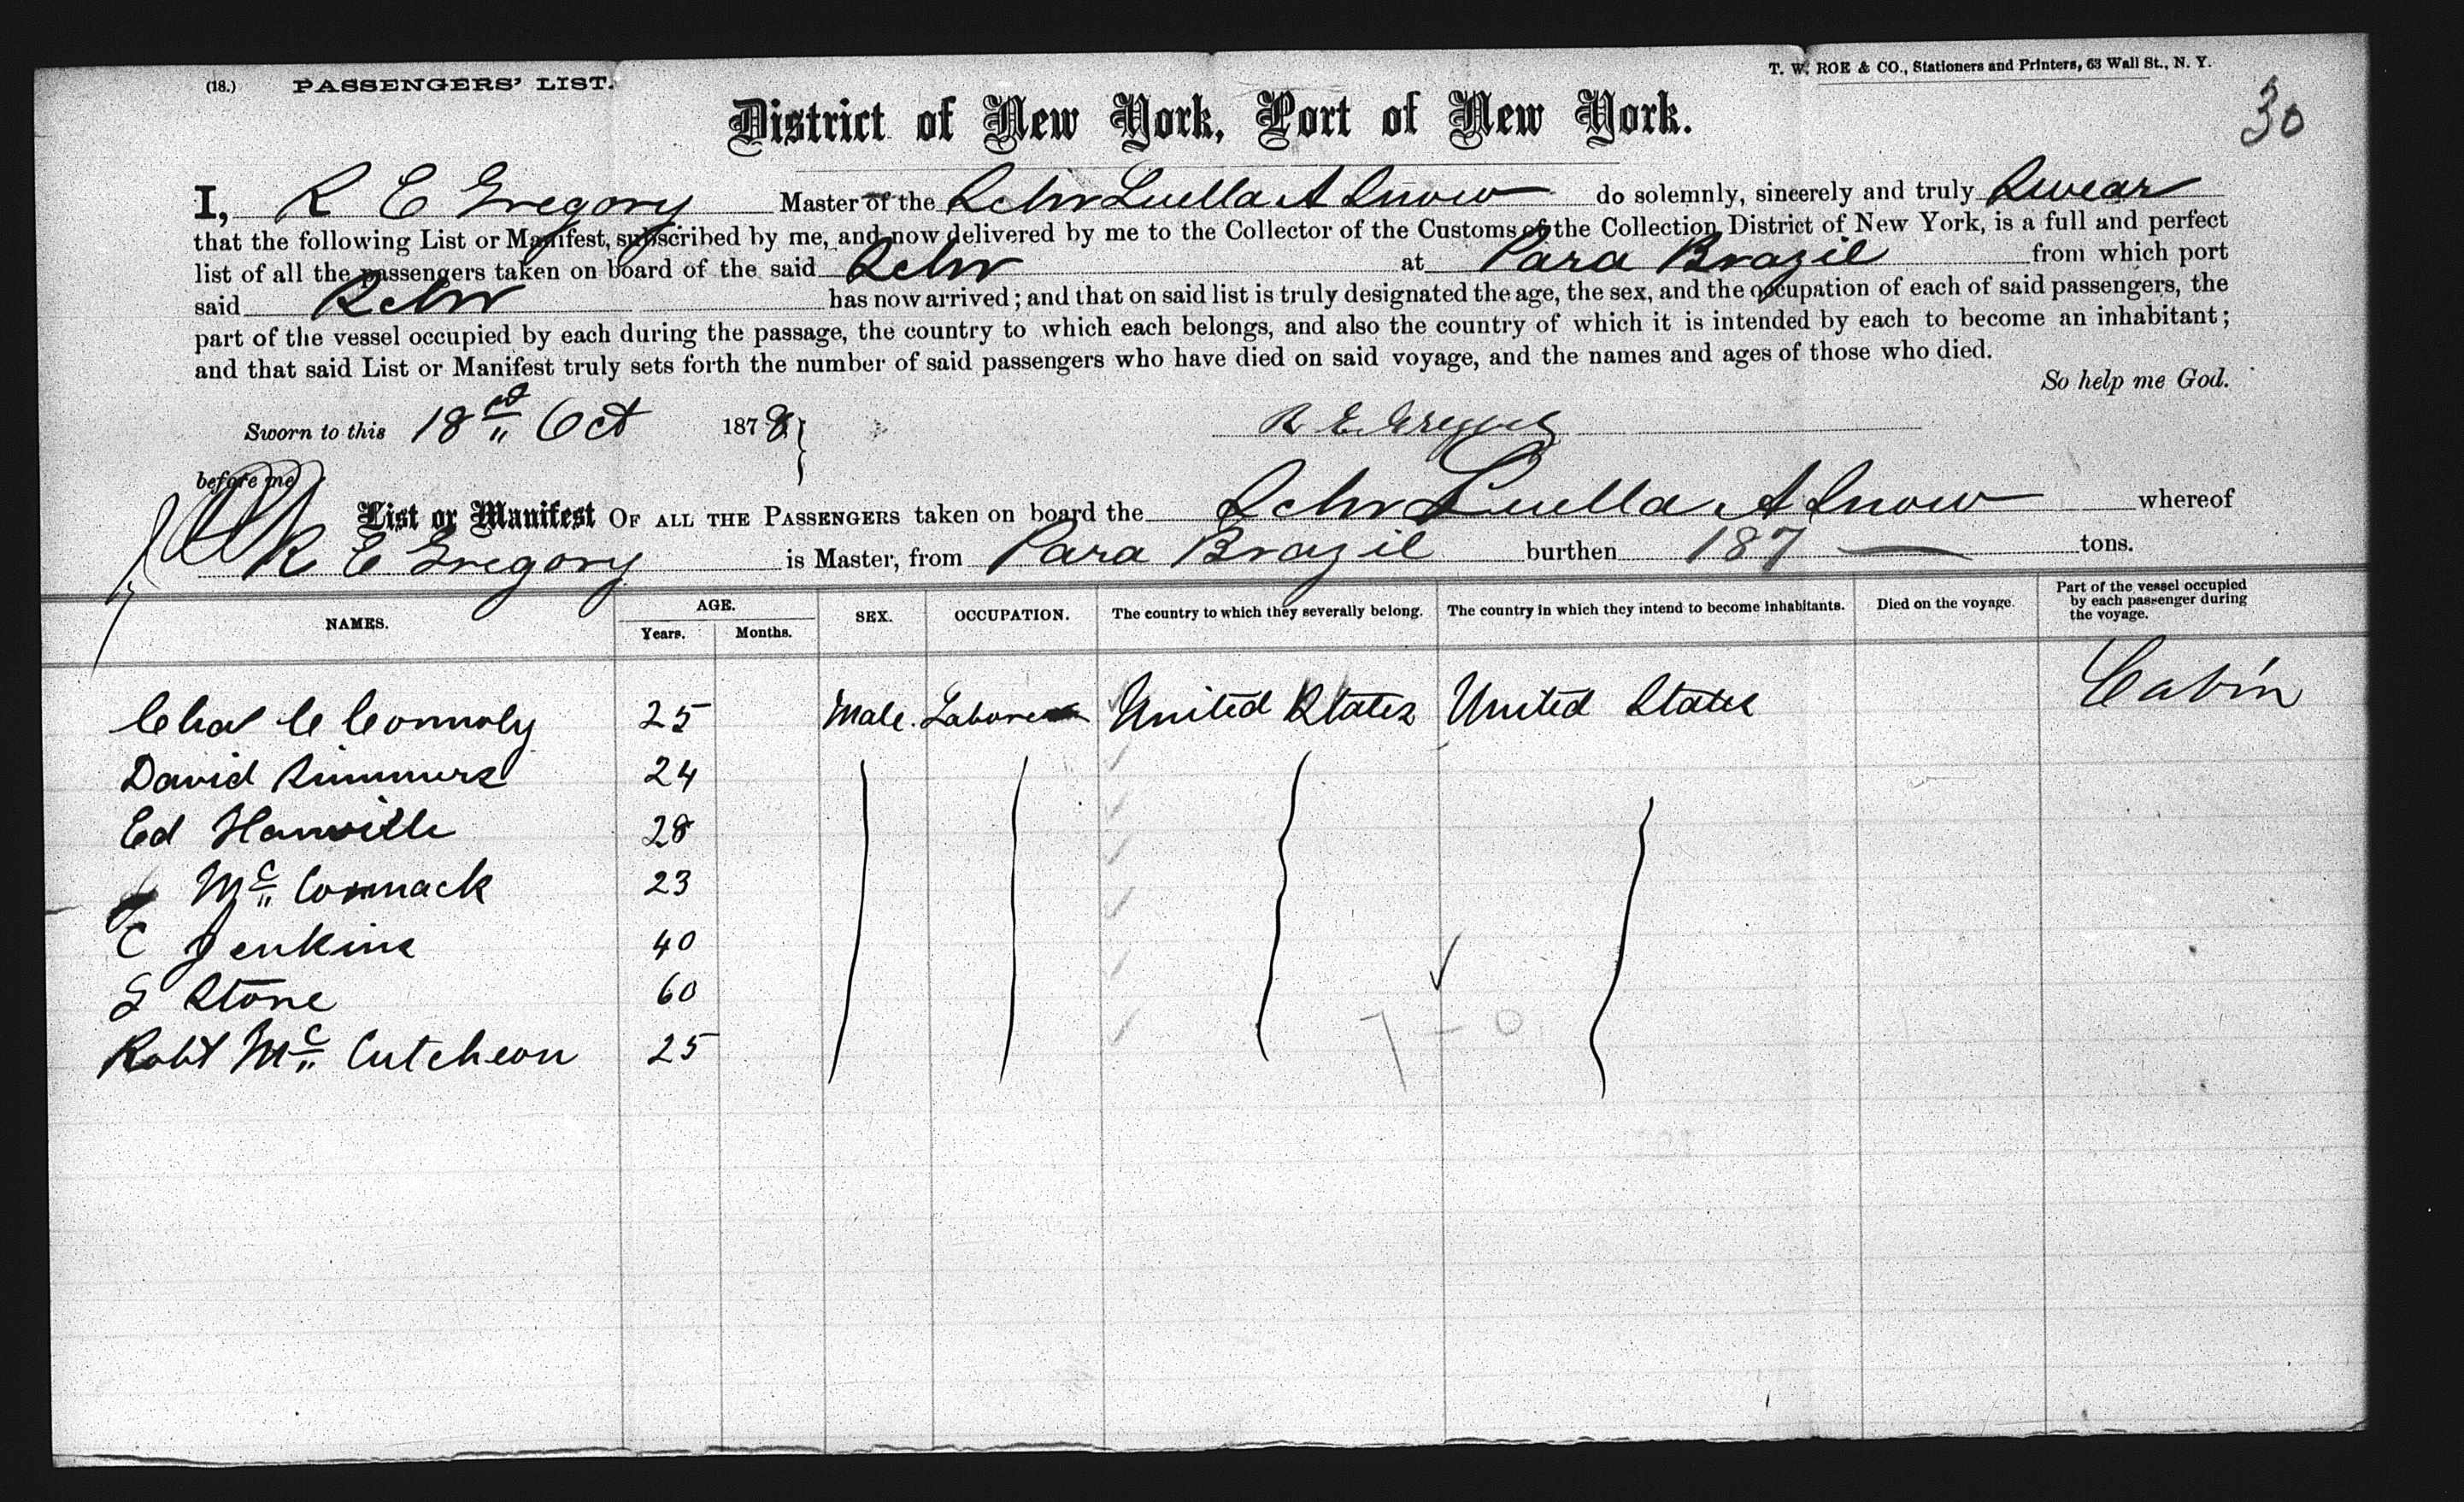 (18.) PASSENGERS' LIST.
T. W. ROE & CO., Stationers and Printers, 63 Wall St., N. Y.
30
District of New York, Port of New York.
I, R E Gregory Master of the Schr Luella A Snow do solemnly, sincerely and truly Swear
that the following List or Manifest, subscribed by me, and now delivered by me to the Collector of the Customs of the Collection District of New York, is a full and perfect
list of all the passengers taken on board of the said Schr at Para Brazil from which port
said Schr has now arrived; and that on said list is truly designated the age, the sex, and the occupation of each of said passengers, the
part of the vessel occupied by each during the passage, the country to which each belongs, and also the country of which it is intended by each to become an inhabitant;
and that said List or Manifest truly sets forth the number of said passengers who have died on said voyage, and the names and ages of those who died.
So help me God.
Sworn to this 18 Oct 1878
R E Gregory
before me
List or Manifest OF ALL THE PASSENGERS taken on board the Schr Luella A Snow whereof
R E Gregory is Master, from Para Brazil burthen 187 tons.
NAMES. AGE. Years. Months. SEX. OCCUPATION. The country to which they severally belong. The country in which they intend to become inhabitants. Died on the voyage. Part of the vessel occupied by each passenger during the voyage.
Chas C Connoly 25 Male. Laborer United States United States Cabin
David Simmers 24
Ed Hanville 28
Mc Cormack 23
C Jenkins 40
S Stone 60
Robt Mc Cutcheon 25
7 - 0